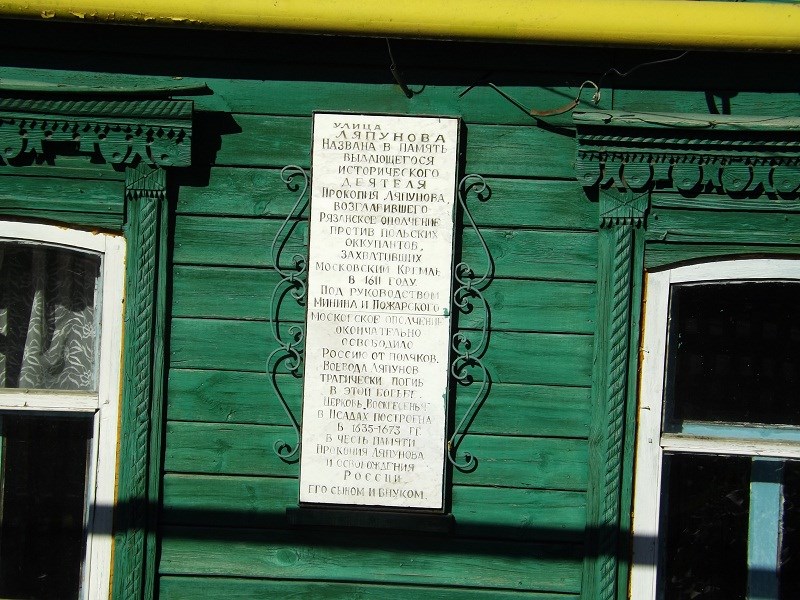 УЛИЦА
ЛЯПУНОВА
НАЗВАНА В ПАМЯТЬ
ВЫДАЮЩЕГОСЯ
ИСТОРИЧЕСКОГО
ДЕЯТЕЛЯ
ПРОКОПИЯ ЛЯПУНОВА
ВОЗГЛАВИВШЕГО
РЯЗАНСКОЕ ОПОЛЧЕНИЕ
ПРОТИВ ПОЛЬСКИХ
ОККУПАНТОВ,
ЗАХВАТИВШИХ
МОСКОВСКИЙ КРЕМЛЬ
В 1611 ГОДУ.
ПОД РУКОВОДСТВОМ
МИНИНА И ПОЖАРСКОГО
МОСКОВСКОЕ ОПОЛЧЕНИЕ
ОКОНЧАТЕЛЬНО
ОСВОБОДИЛО
РОССИЮ ОТ ПОЛЯКОВ.
ВОЕВОДА ЛЯПУНОВ
ТРАГИЧЕСКИ ПОГИБ
В ЭТОЙ БОРЬБЕ.
ЦЕРКОВЬ „ВОСКРЕСЕНЬЯ"
В ИСАДАХ ПОСТРОЕНА
В 1635-1673 ГГ.
В ЧЕСТЬ ПАМЯТИ
ПРОКОПИЯ ЛЯПУНОВА
И ОСВОБОЖДЕНИЯ
РОССИИ
ЕГО СЫНОМ И ВНУКОМ.